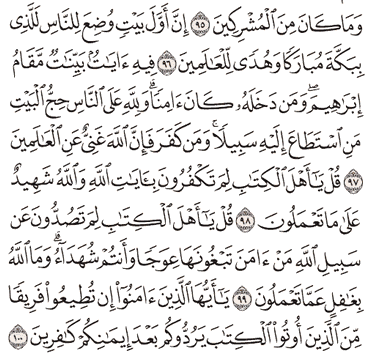 وَمَا كَانَ مِنَ ٱلْمُشْرِكِينَ ٩٥ إِنَّ أَوَّلَ بَيْتٍ وُضِعَ لِلنَّاسِ لَلَّذِى
بِبَكَّةَ مُبَارَكًا وَهُدًى لِّلْعَـٰلَمِينَ ٩٦ فِيهِ ءَايَـٰتٌۢ بَيِّنَـٰتٌ مَّقَامُ
إِبْرَٰهِيمَ ۖ وَمَن دَخَلَهُۥ كَانَ ءَامِنًا ۗ وَلِلَّهِ عَلَى ٱلنَّاسِ حِجُّ ٱلْبَيْتِ
مَنِ ٱسْتَطَاعَ إِلَيْهِ سَبِيلًا ۚ وَمَن كَفَرَ فَإِنَّ ٱللَّهَ غَنِىٌّ عَنِ ٱلْعَـٰلَمِينَ
٩٧ قُلْ يَـٰٓأَهْلَ ٱلْكِتَـٰبِ لِمَ تَكْفُرُونَ بِـَٔايَـٰتِ ٱللَّهِ وَٱللَّهُ شَهِيدٌ
عَلَىٰ مَا تَعْمَلُونَ ٩٨ قُلْ يَـٰٓأَهْلَ ٱلْكِتَـٰبِ لِمَ تَصُدُّونَ عَن
سَبِيلِ ٱللَّهِ مَنْ ءَامَنَ تَبْغُونَهَا عِوَجًا وَأَنتُمْ شُهَدَآءُ ۗ وَمَا ٱللَّهُ
بِغَـٰفِلٍ عَمَّا تَعْمَلُونَ ٩٩ يَـٰٓأَيُّهَا ٱلَّذِينَ ءَامَنُوٓا۟ إِن تُطِيعُوا۟ فَرِيقًا
مِّنَ ٱلَّذِينَ أُوتُوا۟ ٱلْكِتَـٰبَ يَرُدُّوكُم بَعْدَ إِيمَـٰنِكُمْ كَـٰفِرِينَ ١٠٠